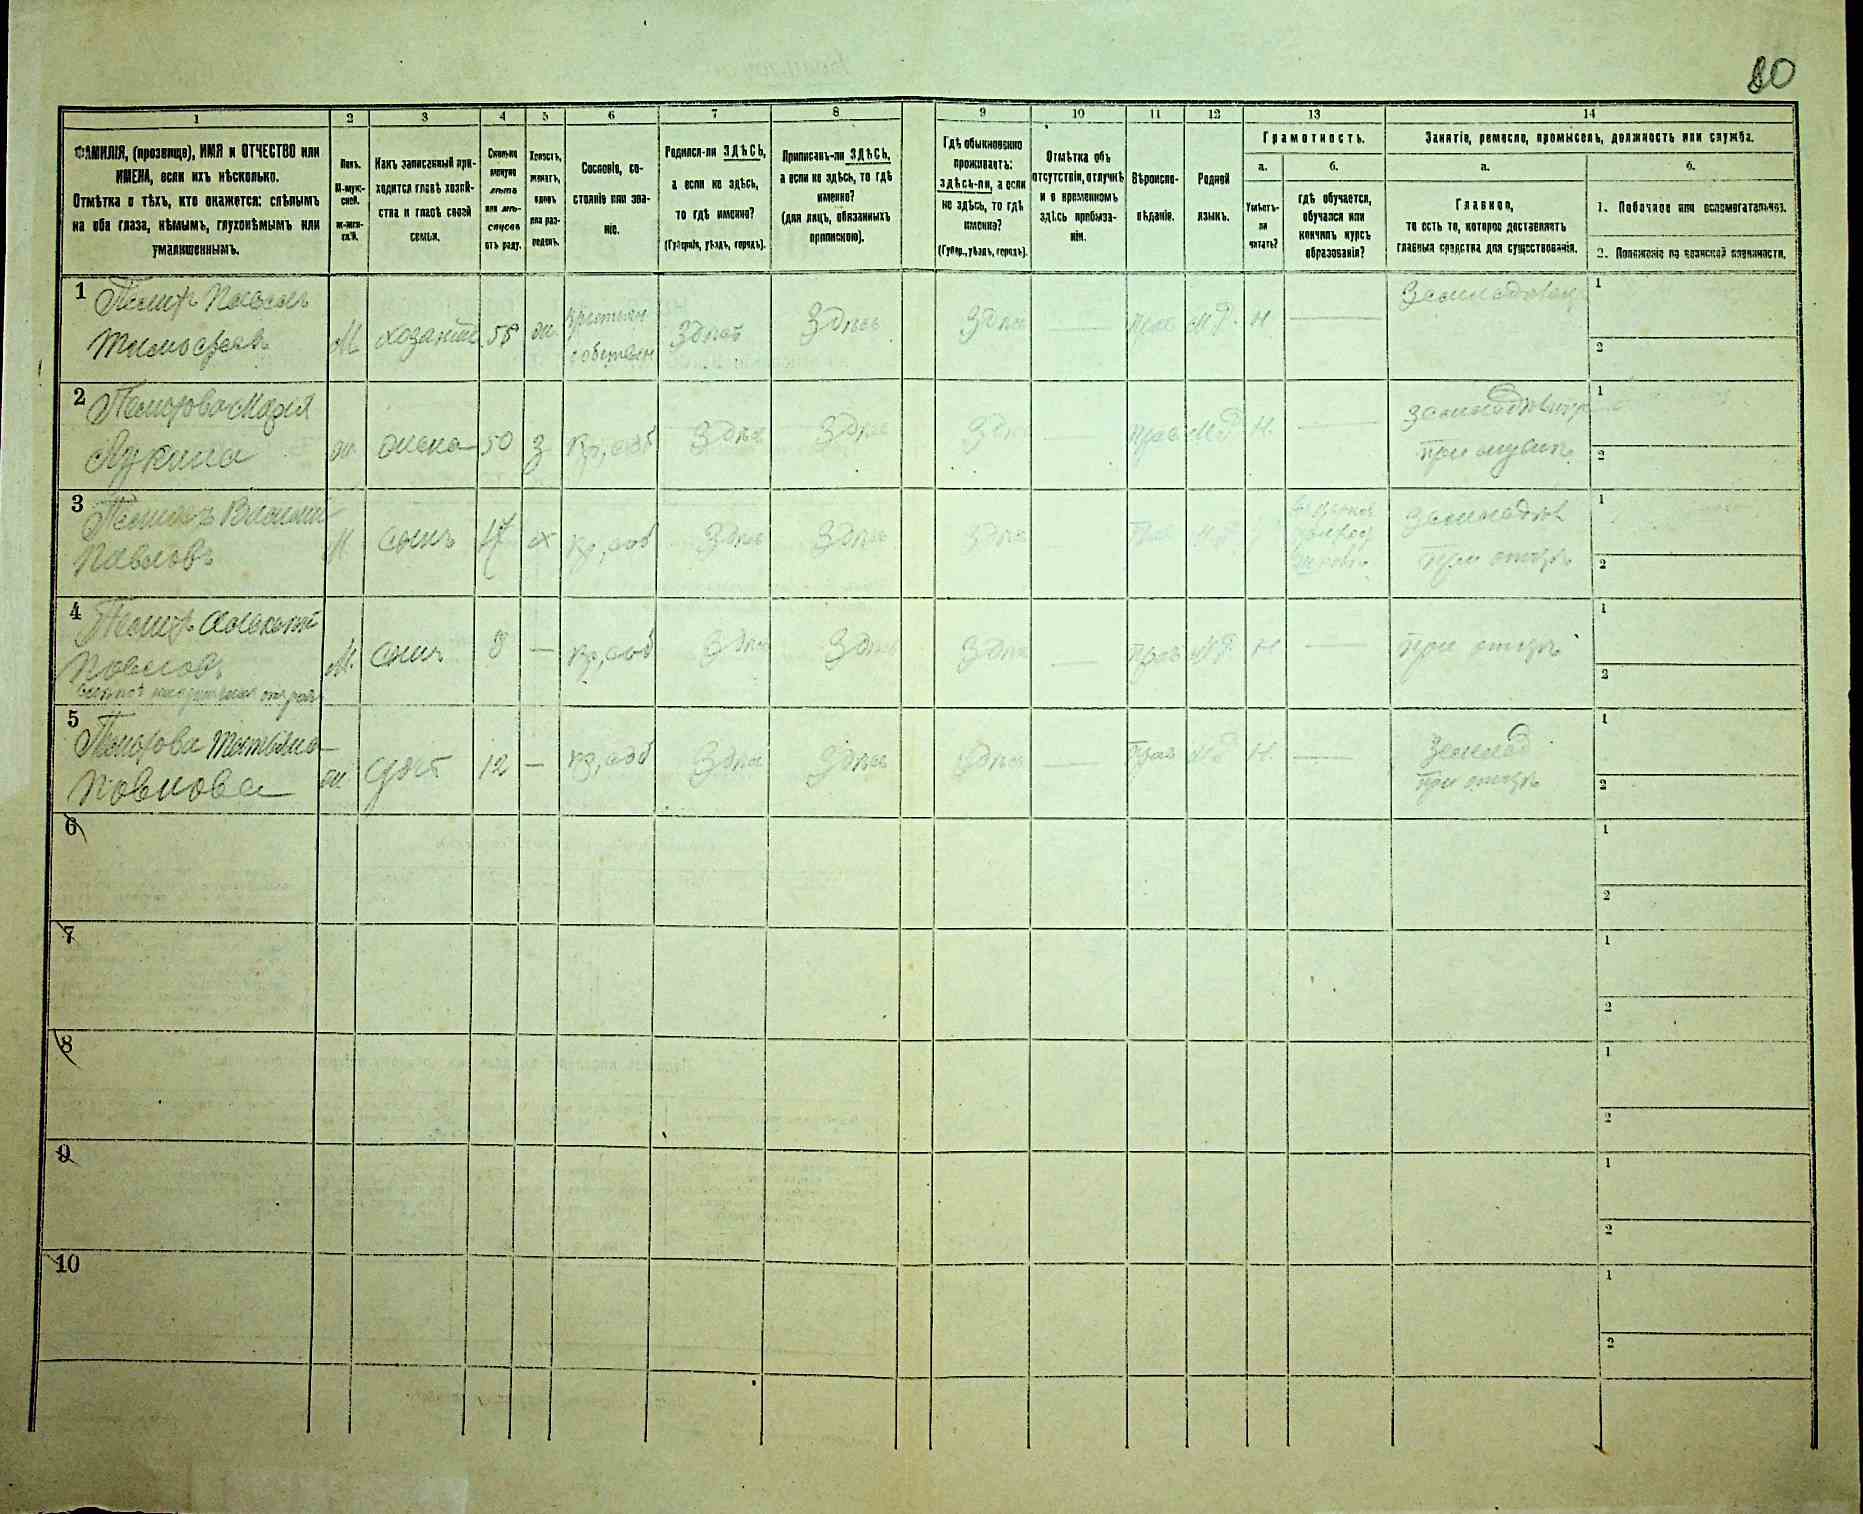 80
1 2 3 4 5 6 7 8 9 10 11 12 13 14
ФАМИЛІЯ, (прозвище), ИМЯ и ОТЧЕСТВО или
ИМЕНА, если ихъ нѣсколько.
Отмѣтка о тѣхъ, кто окажется: слѣпымъ
на оба глаза, нѣмымъ, глухонѣмымъ или
умалишеннымъ.
Полъ.
М-муж-
ской.
ж-жен-
скій.
Какъ записанный при-
ходится главѣ хозяй-
ства и главѣ своей
семьи.
Сколько
минуло
лѣтъ
или мѣ-
сяцевъ
отъ роду.
Холостъ,
женатъ,
вдовъ
или раз-
веденъ.
Сословіе, со-
стояніе или зва-
ніе.
Родился-ли ЗДѢСЬ,
а если не здѣсь,
то гдѣ именно?
(Губернія, уѣздъ, городъ).
Приписанъ-ли ЗДѢСЬ,
а если не здѣсь, то гдѣ
именно?
(для лицъ, обязанныхъ
припискою).
Гдѣ обыкновенно
проживаетъ:
здѣсь-ли, а если
не здѣсь, то гдѣ
именно?
(Губер., уѣздъ, городъ).
Отмѣтка объ
отсутствіи, отлучкѣ
и о временномъ
здѣсь пребыва-
ніи.
Вѣроиспо-
вѣданіе.
Родной
языкъ.
Грамотность.
а. б.
Умѣетъ-
ли
читать?
гдѣ обучается,
обучался или
кончилъ курсъ
образованія?
Занятіе, ремесло, промыселъ, должность или служба.
а. б.
Главное,
то есть то, которое доставляетъ
главныя средства для существованія.
1. Побочное или вспомогательное.
2. Положеніе по воинской повинности.
1
Павелъ
Тимофеевъ
М хозяинъ 58 ж. крестьян
собствен
Здѣсь Здѣсь Здѣсь — М.Р. Н —
1
2
2
Мария
Лукина
ж. жена 50 з кр, соб Здѣсь Здѣсь Здѣсь — Прав М.Р Н. —
1
2
3
Павловъ
М сынъ 17 х кр, соб Здѣсь Здѣсь Здѣсь —
при отцѣ
1
2
4
Алексѣй
Павловъ
М. сынъ 8 — кр, соб Здѣсь Здѣсь Здѣсь — Прав М.Р. Н — при отцѣ
1
2
5
Татьяна
Павлова
ж. 12 — кр, соб Здѣсь Здѣсь Здѣсь — Прав М.Р Н. — Землед
при отцѣ
1
2
6
1
2
7
1
2
8
1
2
9
1
2
10
1
2